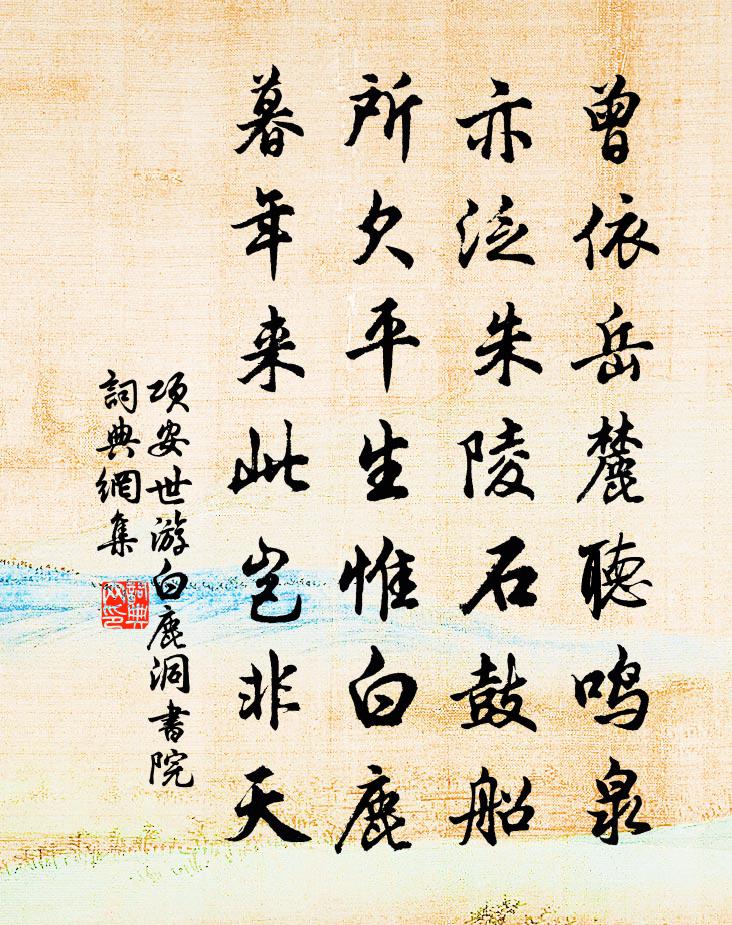 曾依岳麓聽鳴泉
亦泛朱陵石鼓船
所欠平生惟白鹿
暮年来此豈非天
項安世游白鹿洞書院
詞典網集